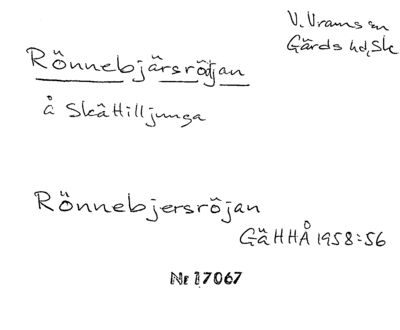 V. Vrams sn
Gärds hd, Sk
Rönnebjärsröjan
å Skättilljunga
Rönnebjersröjan
GäHHÅ 1958:56
Nr 17067